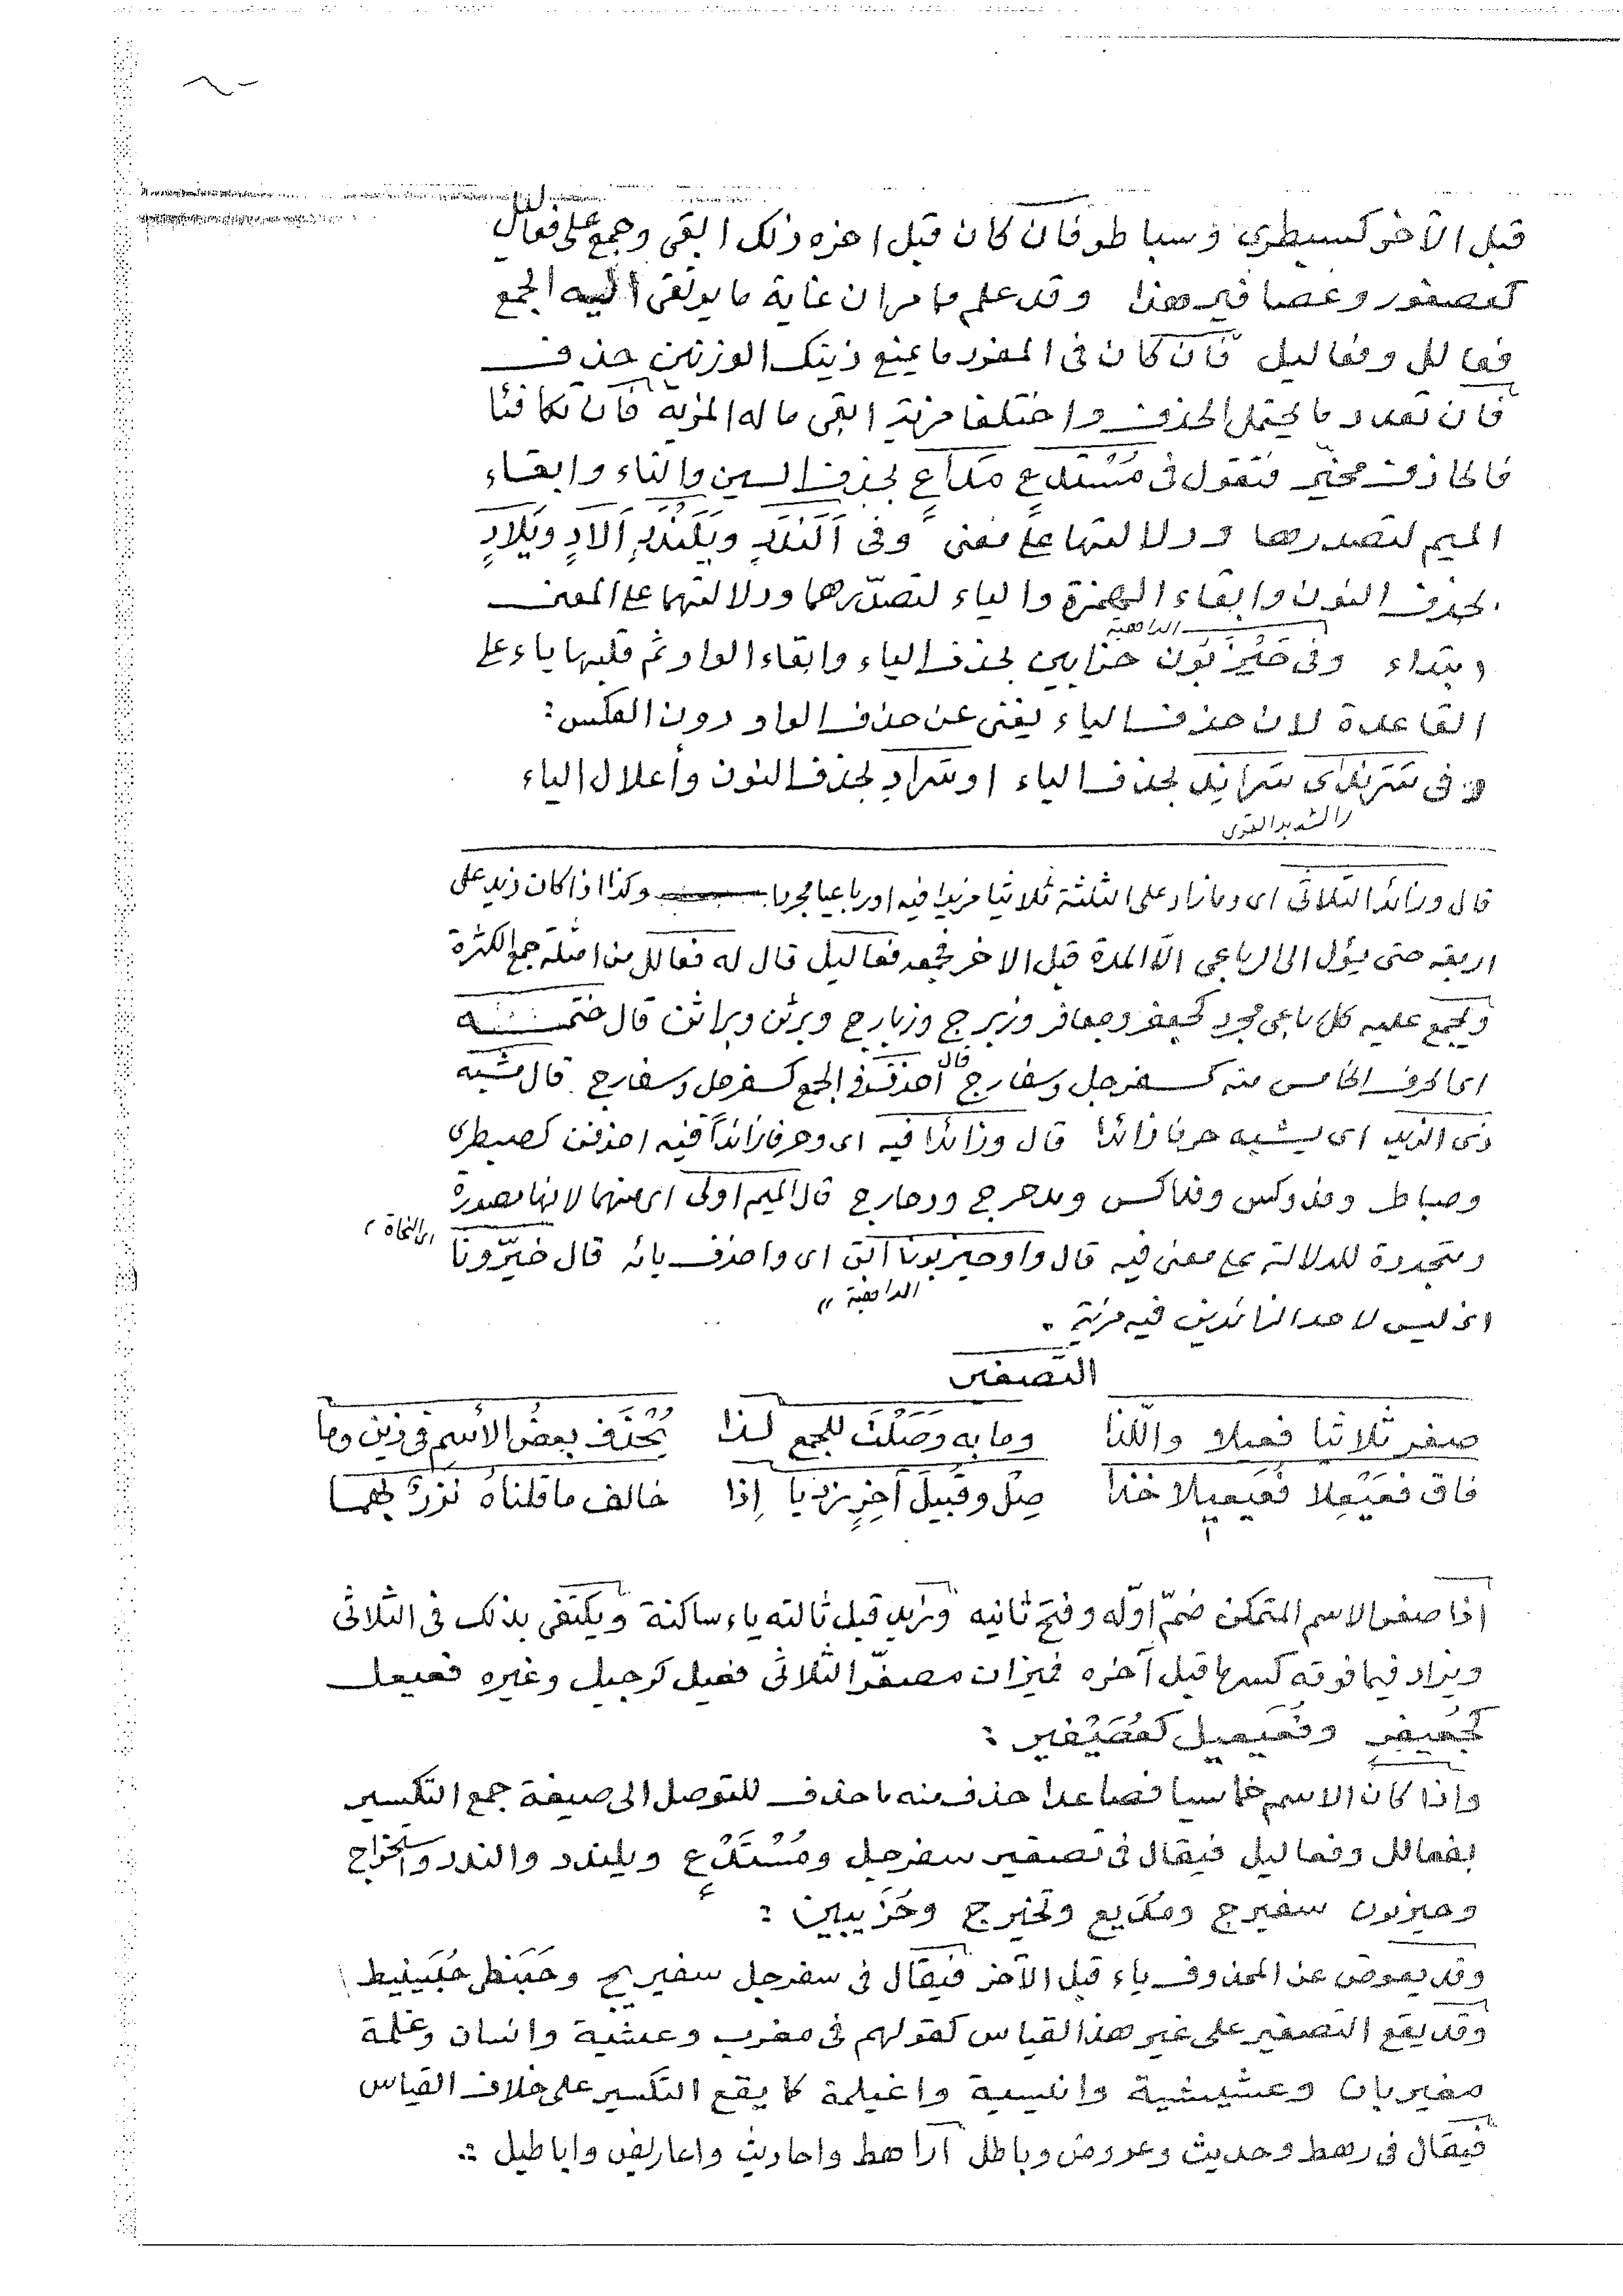 قبل الآخر كسبطرى وسباطر فان كان قبل اخره ذلك ابقى وجمع على فعاليل
كعصفور وعصافير هذا وقد علم مما مر ان غاية ما يرتقى اليه الجمع
فعالل وفعاليل فان كان فى المفرد ما يمنع ذينك الوزنين حذف
فان تعدد ما يحتمل الحذف واختلفا مزية ابقى ما له المزية فان تكافئا
فالحاذف مخيّر فتقول فى مُسْتَدعٍ مَداعٍ بحذف السين والتاء وابقاء
الميم لتصدرها ودلالتها على معنى وفى اَلَنْدَدٍ ويَلَنْدَدٍ اَلادٍ ويَلادٍ
بحذف النون وابقاء الهمزة والياء لتصدّرهما ودلالتهما على المعنى
ابتداء وفى حَيْزَبُون حزابين بحذف الياء وابقاء الواو ثم قلبها ياء على
الداهية
القاعدة لان حذف الياء يغنى عن حذف الواو دون العكس:
و فى سَرَندَى سَرانِد بحذف الياء او سَرادٍ بحذف النون وأعلال الياء
الشديد القوى
قال وزائد الثلاثى اى وما زاد على الثلثة ثلاثيا مزيدا فيه او رباعيا مجردا وكذا اذا كان زيد على
اربعة حتى يؤل الى الرباعى الا المدة قبل الاخر فجمعه فعاليل قال له فعالل من امثلة جمع الكثرة
ويجمع عليه كل رباعى مجرد كجعفر وجعافر وزبرج وزبارج وبرثن وبراثن قال ختمته
اى الحرف الخامس منه كسفرجل وسفارج قال احذفْ فى الجمع كسفرجل وسفارج قال مشبه
ذى الزيد اى يشبه حرفا زائدا قال وزائدا فيه اى وحرفا زائداً فيه احذفن كصبطرى
وصباطر وفدوكس وفداكس ومدحرج ودحارج قال الميم اولى اى منهما لانها مصدرة
ومتجددة للدلالة على معنى فيه قال واو حيزبونا ابق اى واحذف يائه قال خيّرونا
اى النحاة
الداهية
اذ ليس لاحد الزائدين فيه مزية .
التّصغير
صغر ثلاثيا فعيلا واللّذا وما به وَصَلْتَ للجمع لذا يُحْذَف بعضُ الأسِم فى ذين وما
فاق فعَيْعِلا فُعَيعيلا خذا صِلْ وقُبَيلَ آخِرٍ زد يا إذا خالف ما قلناهُ نَزرٌ لهما
اذا صغر الاسم المتمكن ضمّ اوّله وفتح ثانيه وزيد قبل ثالثه ياء ساكنة ويكتفى بذلك فى الثلاثى
ويزاد فيما فوقه كسر ما قبل آخره فميزان مصغّر الثلاثى فعيل كرجيل وغيره فعيعل
كجُعيفر وفُعَيعيل كعُصَيْفير :
واذا كان الاسم خماسيا فصاعدا حذف منه ما حذف للتوصل الى صيغة جمع التكسير
بفعالل وفعاليل فيقال فى تصغير سفرجل ومُسْتَدْعٍ ويلندد والندد واستخراج
وحيزبون سفيرج ومُدَيع وتخيرج وحُزَيبين :
وقد يعوض عن المحذوف ياء قبل الآخر فيقال فى سفرجل سفيريج وحَبَنطى حُبَيْنيط
وقد يقع التصغير على غير هذا القياس كقولهم فى مغرب وعشية وانسان وغلمة
مغيربان وعشيشية وانيسية واغيلمة كما يقع التكسير على خلاف القياس
فيقال فى رهط وحديث وعروض وباطل اراهط واحاديث واعاريض واباطيل :